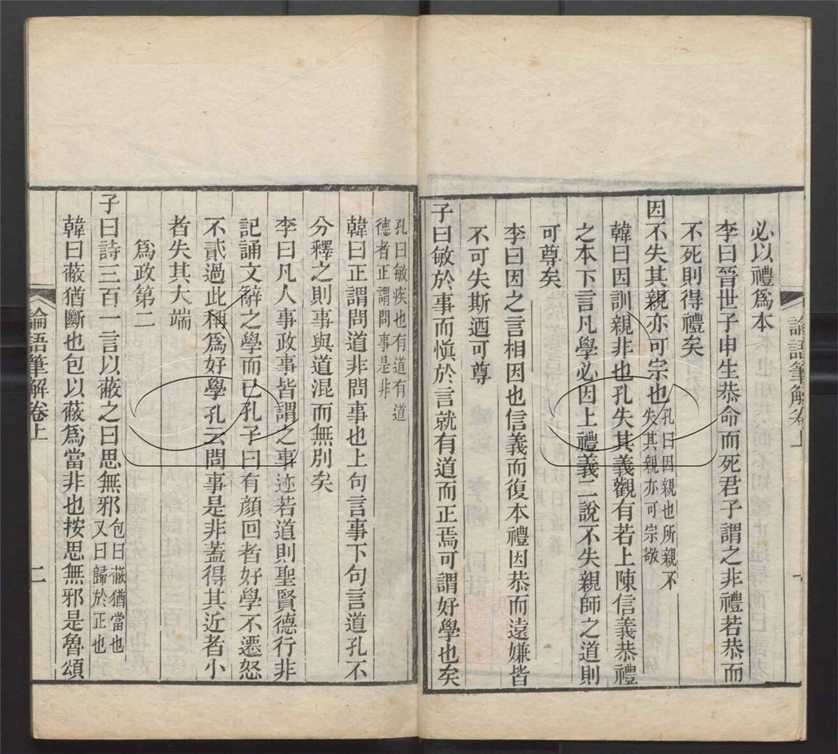 必以禮爲本
李曰晉世子申生恭命而死君子謂之非禮若恭而
不死則得禮矣
因不失其親亦可宗也孔曰因親也所親不失其親亦可宗敬
韓曰因訓親非也孔失其義觀有若上陳信義恭禮
之本下言凡學必因上禮義二說不失親師之道則
可尊矣
李曰因之言相因也信義而復本禮因恭而遠嫌皆
不可失斯迺可尊
子曰敏於事而愼於言就有道而正焉可謂好學也矣
孔曰敏疾也有道有道
德者正謂問事是非
韓曰正謂問道非問事也上句言事下句言道孔不
分釋之則事與道混而無別矣
李曰凡人事政事皆謂之事迹若道則聖賢德行非
記誦文辭之學而已孔子曰有顏回者好學不遷怒
不貳過此稱爲好學孔云問事是非蓋得其近者小
者失其大端
爲政第二
子曰詩三百一言以蔽之曰思無邪包曰蔽猶當也又曰歸於正也
韓曰蔽猶斷也包以蔽爲當非也按思無邪是魯頌
論語筆解卷上
二
論語筆解卷上